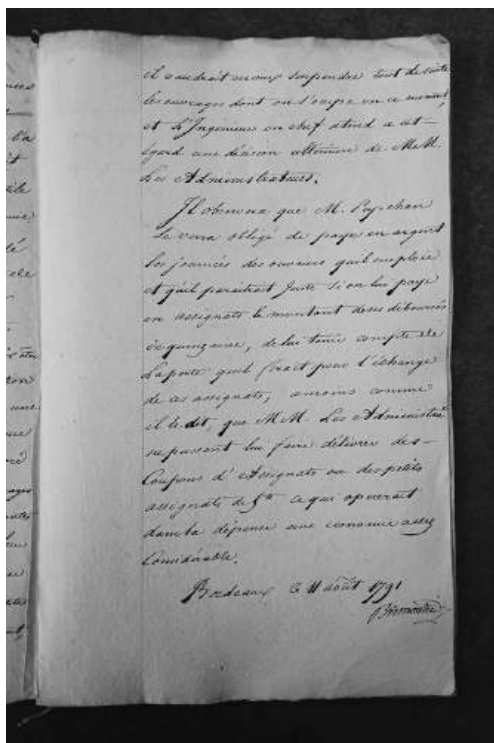 il vaudrait mieux suspendre tout de suite
les ouvrages dont on s'occupe en ce moment,
et L'Ingénieur en chef atend a cet
égard une décision ultérieure de M.M.
Les Administrateurs.
Il observera que M. Peychan
Se verra obligé de payer en argent
Les journées des ouvriers qu'il emploie
et qu'il paraitrait juste si on lui paye
en assignats le montant de ses déboursés
de quinzaine, de lui tenir compte de
La perte qu'il ferait pour l'échange
de ces assignats, amoins comme
il le dit, que M.M. Les Administrateurs
ne puissent lui faire délivrer des
Coupons d'Assignats ou des petits
assignats de 5tt ce qui opererait
dans la dépense une économie assez
Considérable.
Bordeaux le 11 août 1791
Brémontier